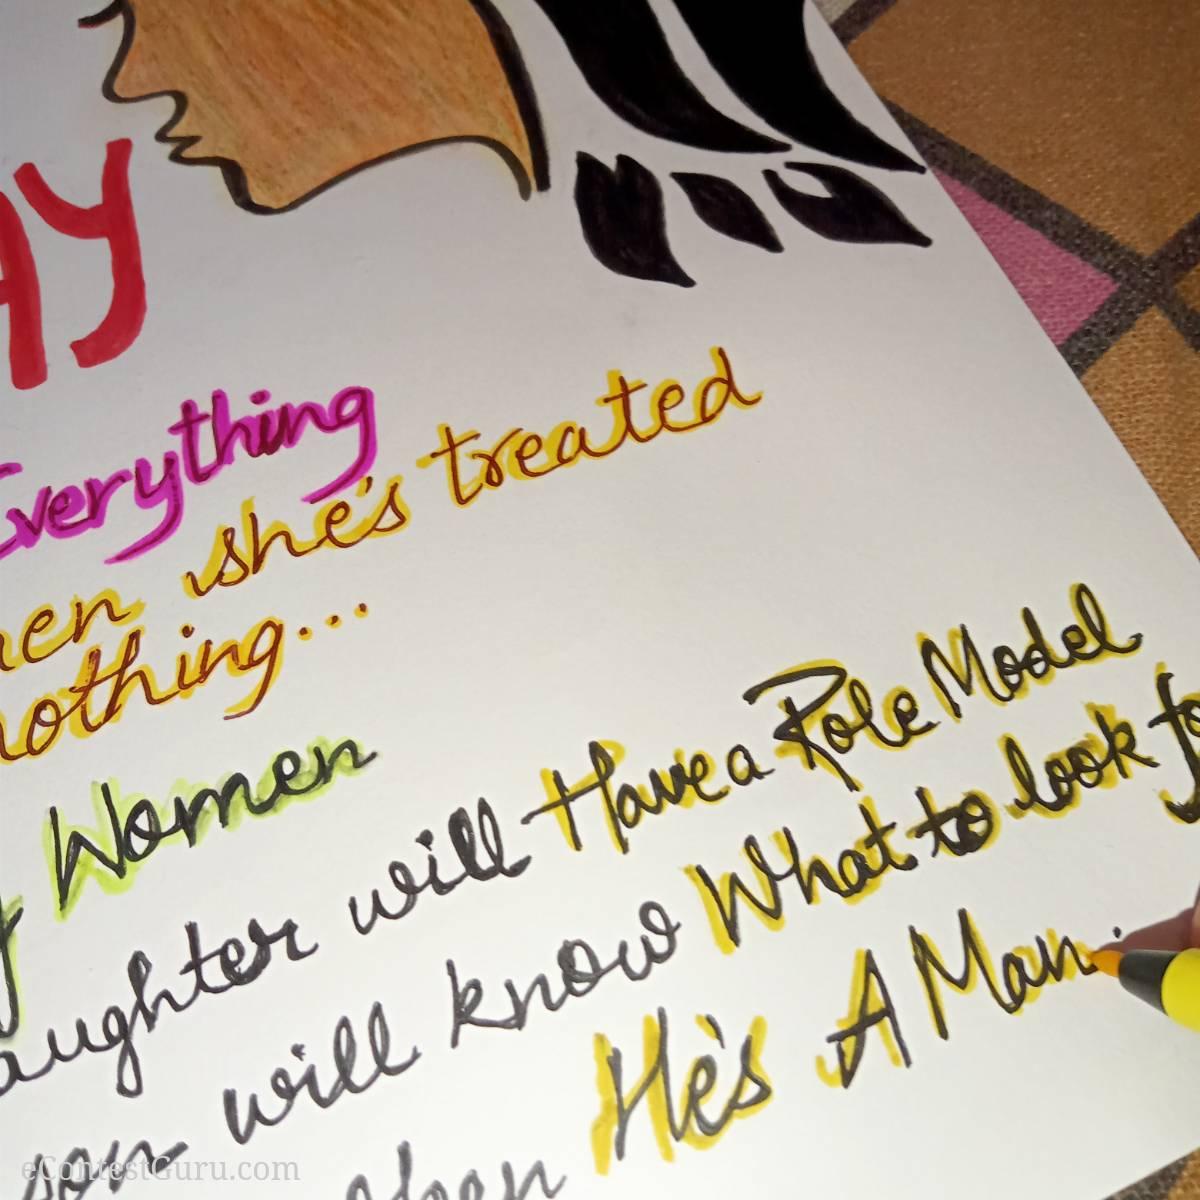 AY
Everything
en she's treated
nothing...
Women
aughter will Have a Role Model
son will know What to look fo
He's A Man.
eContestGuru.com